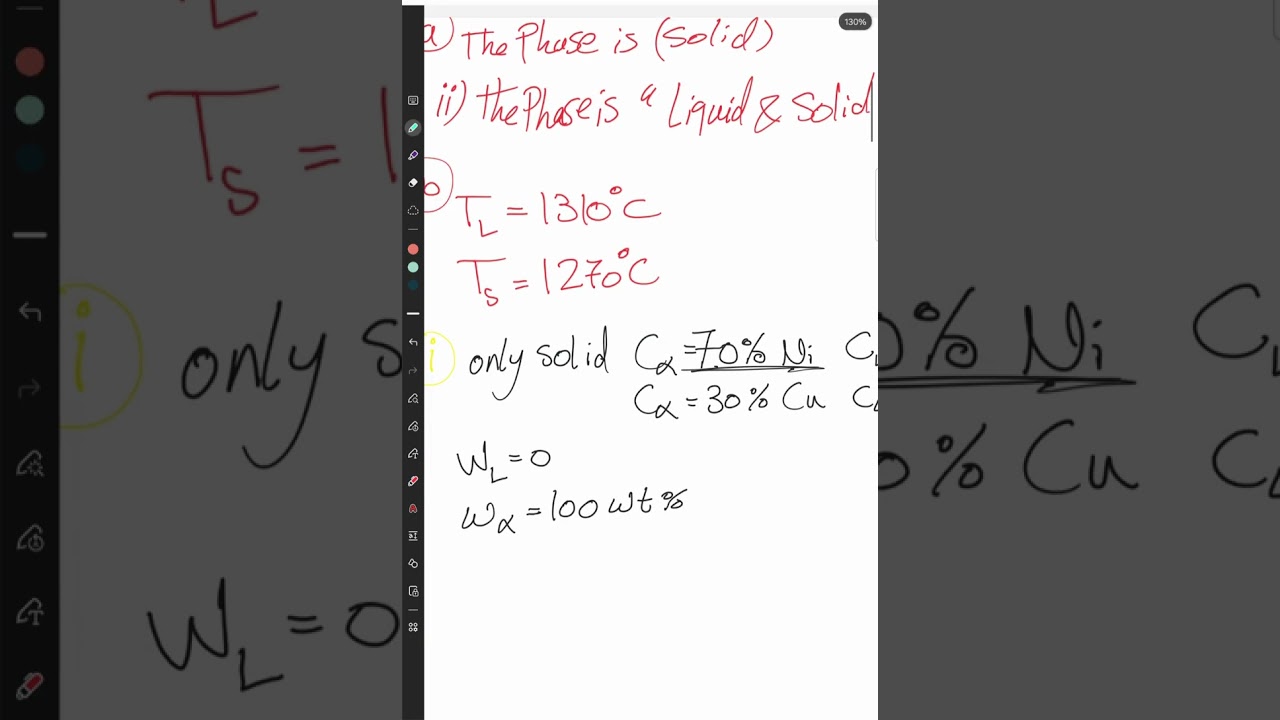 130%
a) The Phase is (Solid)
ii) the Phase is a Liquid & Solid
b
T_L = 1310°C
T_s = 1270°C
i only solid C_α = 70% Ni C
C_α = 30% Cu C
W_L = 0
W_α = 100 wt%